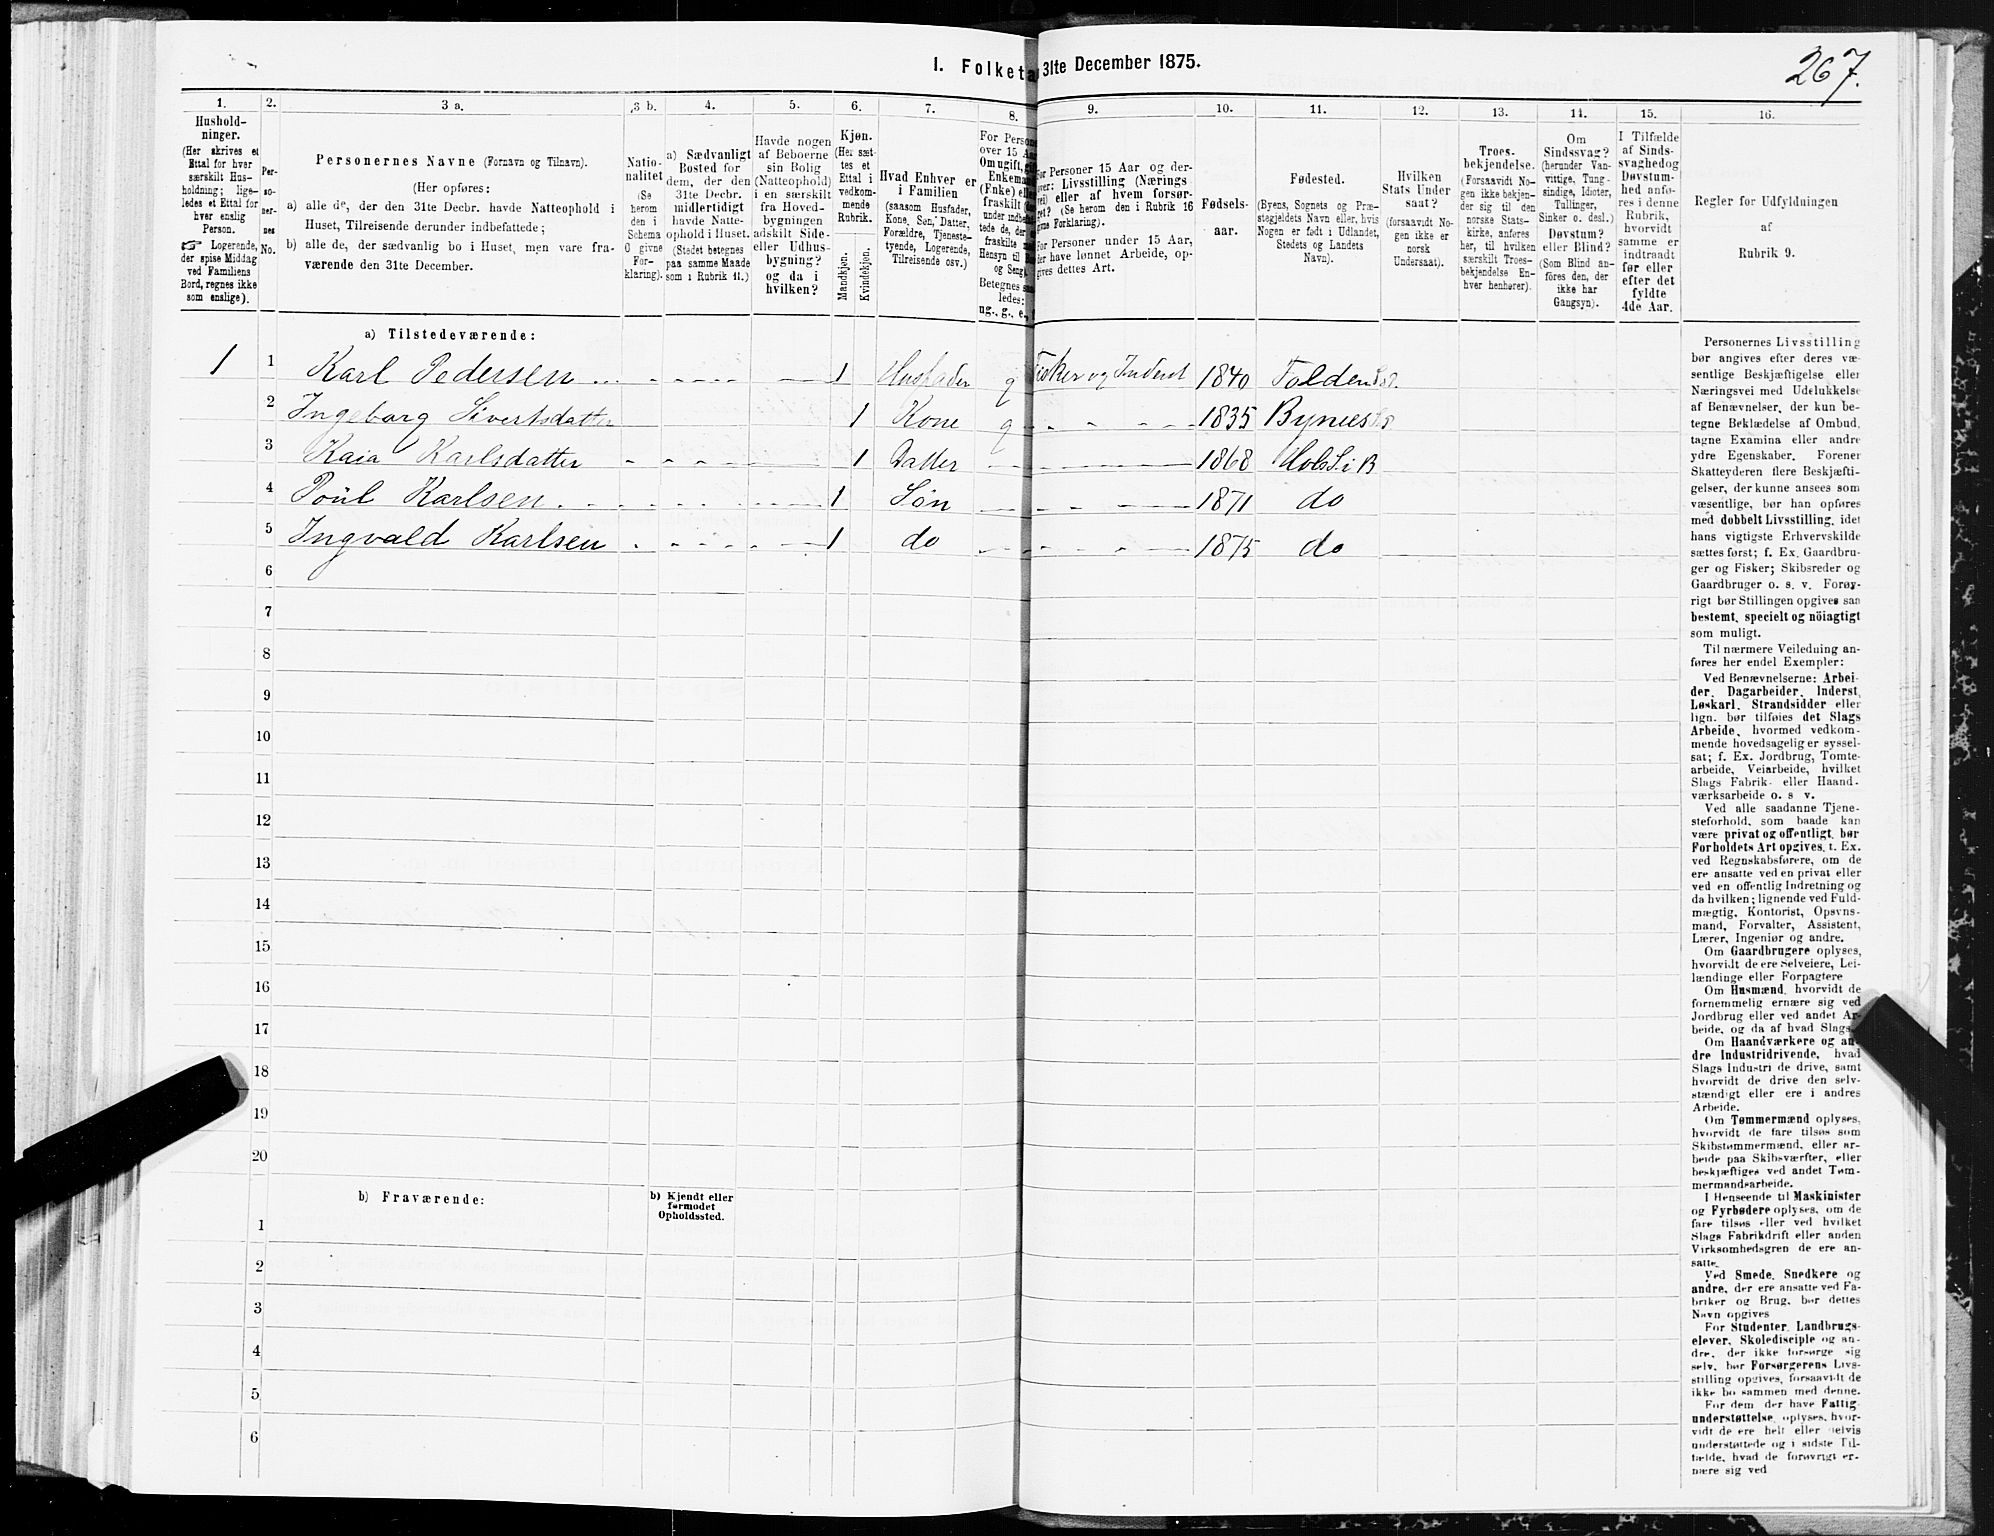 I. Folketa 31te December 1875.
267.
1. 2. 3 a. 3 b. 4. 5. 6. 7. 8. 9. 10. 11. 12. 13. 14. 15. 16.
Hushold-
ninger.
(Her skrives et
Ettal for hver
særskilt Hus-
holdning; lige-
ledes et Ettal for
hver enslig
Person.
☞ Logerende,
der spise Middag
ved Familiens
Bord, regnes ikke
som enslige).
Per-
so-
ner-
nes
No.
Personernes Navne (Fornavn og Tilnavn).
(Her opføres:
a) alle de, der den 31te Decbr. havde Natteophold i
Huset, Tilreisende derunder indbefattede;
b) alle de, der sædvanlig bo i Huset, men vare fra-
værende den 31te December.
Natio-
nalitet
(Se
herom
den i
Schema
O givne
For-
klaring).
a) Sædvanligt
Bosted for
dem, der den
31te Decbr.
midlertidigt
havde Natte-
ophold i Huset.
(Stedet betegnes
paa samme Maade
som i Rubrik 11.)
Havde nogen
af Beboerne
sin Bolig
(Natteophold)
i en særskilt
fra Hoved-
bygningen
adskilt Side-
eller Udhus-
bygning?
og da i
hvilken?
Kjøn.
(Her sæt-
tes et
Ettal i
vedkom-
mende
Rubrik.
Mandkjøn.
Kvindekjøn.
Hvad Enhver er
i Familien
(saasom Husfader,
Kone, Søn, Datter,
Forældre, Tjeneste-
tyende, Logerende,
Tilreisende osv.)
For Person
over 15 Aa
Om ugift, gif
Enkeman
(Fnke) elle
fraskilt (de
under indbefat-
tede de, der e
fraskilte med
Hensyn til B
og Seng).
Betegnes saa
ledes:
ug., g., e.,
For Personer 15 Aar og der-
over: Livsstilling (Nærings
vei) eller af hvem forsør-
get? (Se herom den i Rubrik 16
givne Forklaring).
For Personer under 15 Aar,
der have lønnet Arbeide, op-
gives dettes Art.
Fødsels-
aar.
Fødested.
(Byens, Sognets og Præ-
stegjeldets Navn eller, hvis
Nogen er født i Udlandet,
Stedets og Landets
Navn).
Hvilken
Stats Under
saat?
(forsaavidt No-
gen ikke er
norsk
Undersaat).
Troes-
bekjendelse.
(Forsaavidt No-
gen ikke bekjen-
der sig til den
norske Stats-
kirke, anføres
her, til hvilken
særskilt Troes-
bekjendelse En-
hver henhører).
Om
Sindssvag?
(herunder Van-
vittige, Tung-
sindige, Idioter,
Tullinger,
Sinker o. desl.)
Døvstum?
eller Blind?
(Som Blind an-
føres den, der
ikke har
Gangsyn).
I Tilfælde
af Sinds-
svaghed og
Døvstum-
hed anfø-
res i denne
Rubrik,
hvorvidt
samme er
indtraadt
før eller
efter det
fyldte
4de Aar.
Regler for Udfyldningen
af
Rubrik 9.
a) Tilstedeværende:
1 1 Karl Pedersen 1 Husfader g Fisker og Inderst 1840 Folden
2 Ingeborg Sivertsdatter 1 Kone g 1835 Bynæs
3 Kaia Karlsdatter 1 Datter 1868 Hols S. i B
4 Poul Karlsen 1 Søn 1871 do
5 Ingvald Karlsen 1 do 1875 do
6
7
8
9
10
11
12
13
14
15
16
17
18
19
20
b) Fraværende: b) Kjendt eller
formodet
Opholdssted.
1
2
3
4
5
6
Personernes Livsstilling
bør angives efter deres væ-
sentlige Beskjæftigelse eller
Næringsvei med Udelukkelse
af Benævnelser, der kun be-
tegne Beklædelse af Ombud,
tagne Examina eller andre
ydre Egenskaber. Forener
Skatteyderen flere Beskjæfti-
gelser, der kunne ansees som
væsentlige, bør han opføres
med dobbelt Livsstilling, idet
hans vigtigste Erhvervskilde
sættes først; f. Ex. Gaardbru-
ger og Fisker; Skibsreder og
Gaardbruger o. s. v. Forøv-
rigt bør Stillingen opgives saa
bestemt, specielt og nöiagtigt
som muligt.
Til nærmere Veiledning an-
føres her endel Exempler:
Ved Benævnelserne: Arbei-
der, Dagarbeider, Inderst,
Løskarl, Strandsidder eller
lign. bør tilføies det Slags
Arbeide, hvormed vedkom-
mende hovedsagelig er syssel-
sat; f. Ex. Jordbrug, Tomte-
arbeide, Veiarbeide, hvilket
Slags Fabrik- eller Haand-
værksarbeide o. s v.
Ved alle saadanne Tjene-
steforhold, som baade kan
være privat og offentligt, bør
Forholdets Art opgives, t. Ex.
ved Regnskabsførere, om de
ere ansatte ved en privat eller
ved en offentlig Indretning og
da hvilken; lignende ved Fuld-
mægtig, Kontorist, Opsyns-
mand, Forvalter, Assistent,
Lærer, Ingeniør og andre.
Om Gaardbrugere oplyses,
hvorvidt de ere Selveiere, Lei-
lændinge eller Forpagtere
Om Husmænd, hvorvidt de
fornemmelig ernære sig ved
Jordbrug eller ved andet Ar-
beide, og da af hvad Slags.
Om Haandværkere og an-
dre Industridrivende, hvad
Slags Industri de drive, samt
hvorvidt de drive den selv-
stændigt eller ere i andres
Arbeide.
Om Tømmermænd oplyses,
hvorvidt de fare tilsøs som
Skibstømmermænd, eller ar-
beide paa Skibsværfter, eller
beskjæftiges ved andet Tøm-
mermandsarbeide.
I Henseende til Maskinister
og Fyrbødere oplyses, om de
fare tilsøs eller ved hvilket
Slags Fabrikdrift eller anden
Virksomhedsgren de ere an-
satte.
Ved Smede, Snedkere og
andre, der ere ansatte ved Fa-
briker og Brug, bør dettes
Navn opgives
For Studenter, Landbrugs-
elever, Skoledisciple og an-
dre, der ikke forsørge sig
selv, bør Forsørgerens Livs-
stilling opgives, forsaavidt de
ikke bo sammen med denne.
For dem, der have Fattig-
understøttelse, oplyses, hvor-
vidt de ere helt eller delvis
understøttede og i sidste Til-
fælde, hvad de forøvrigt er-
nære sig ved